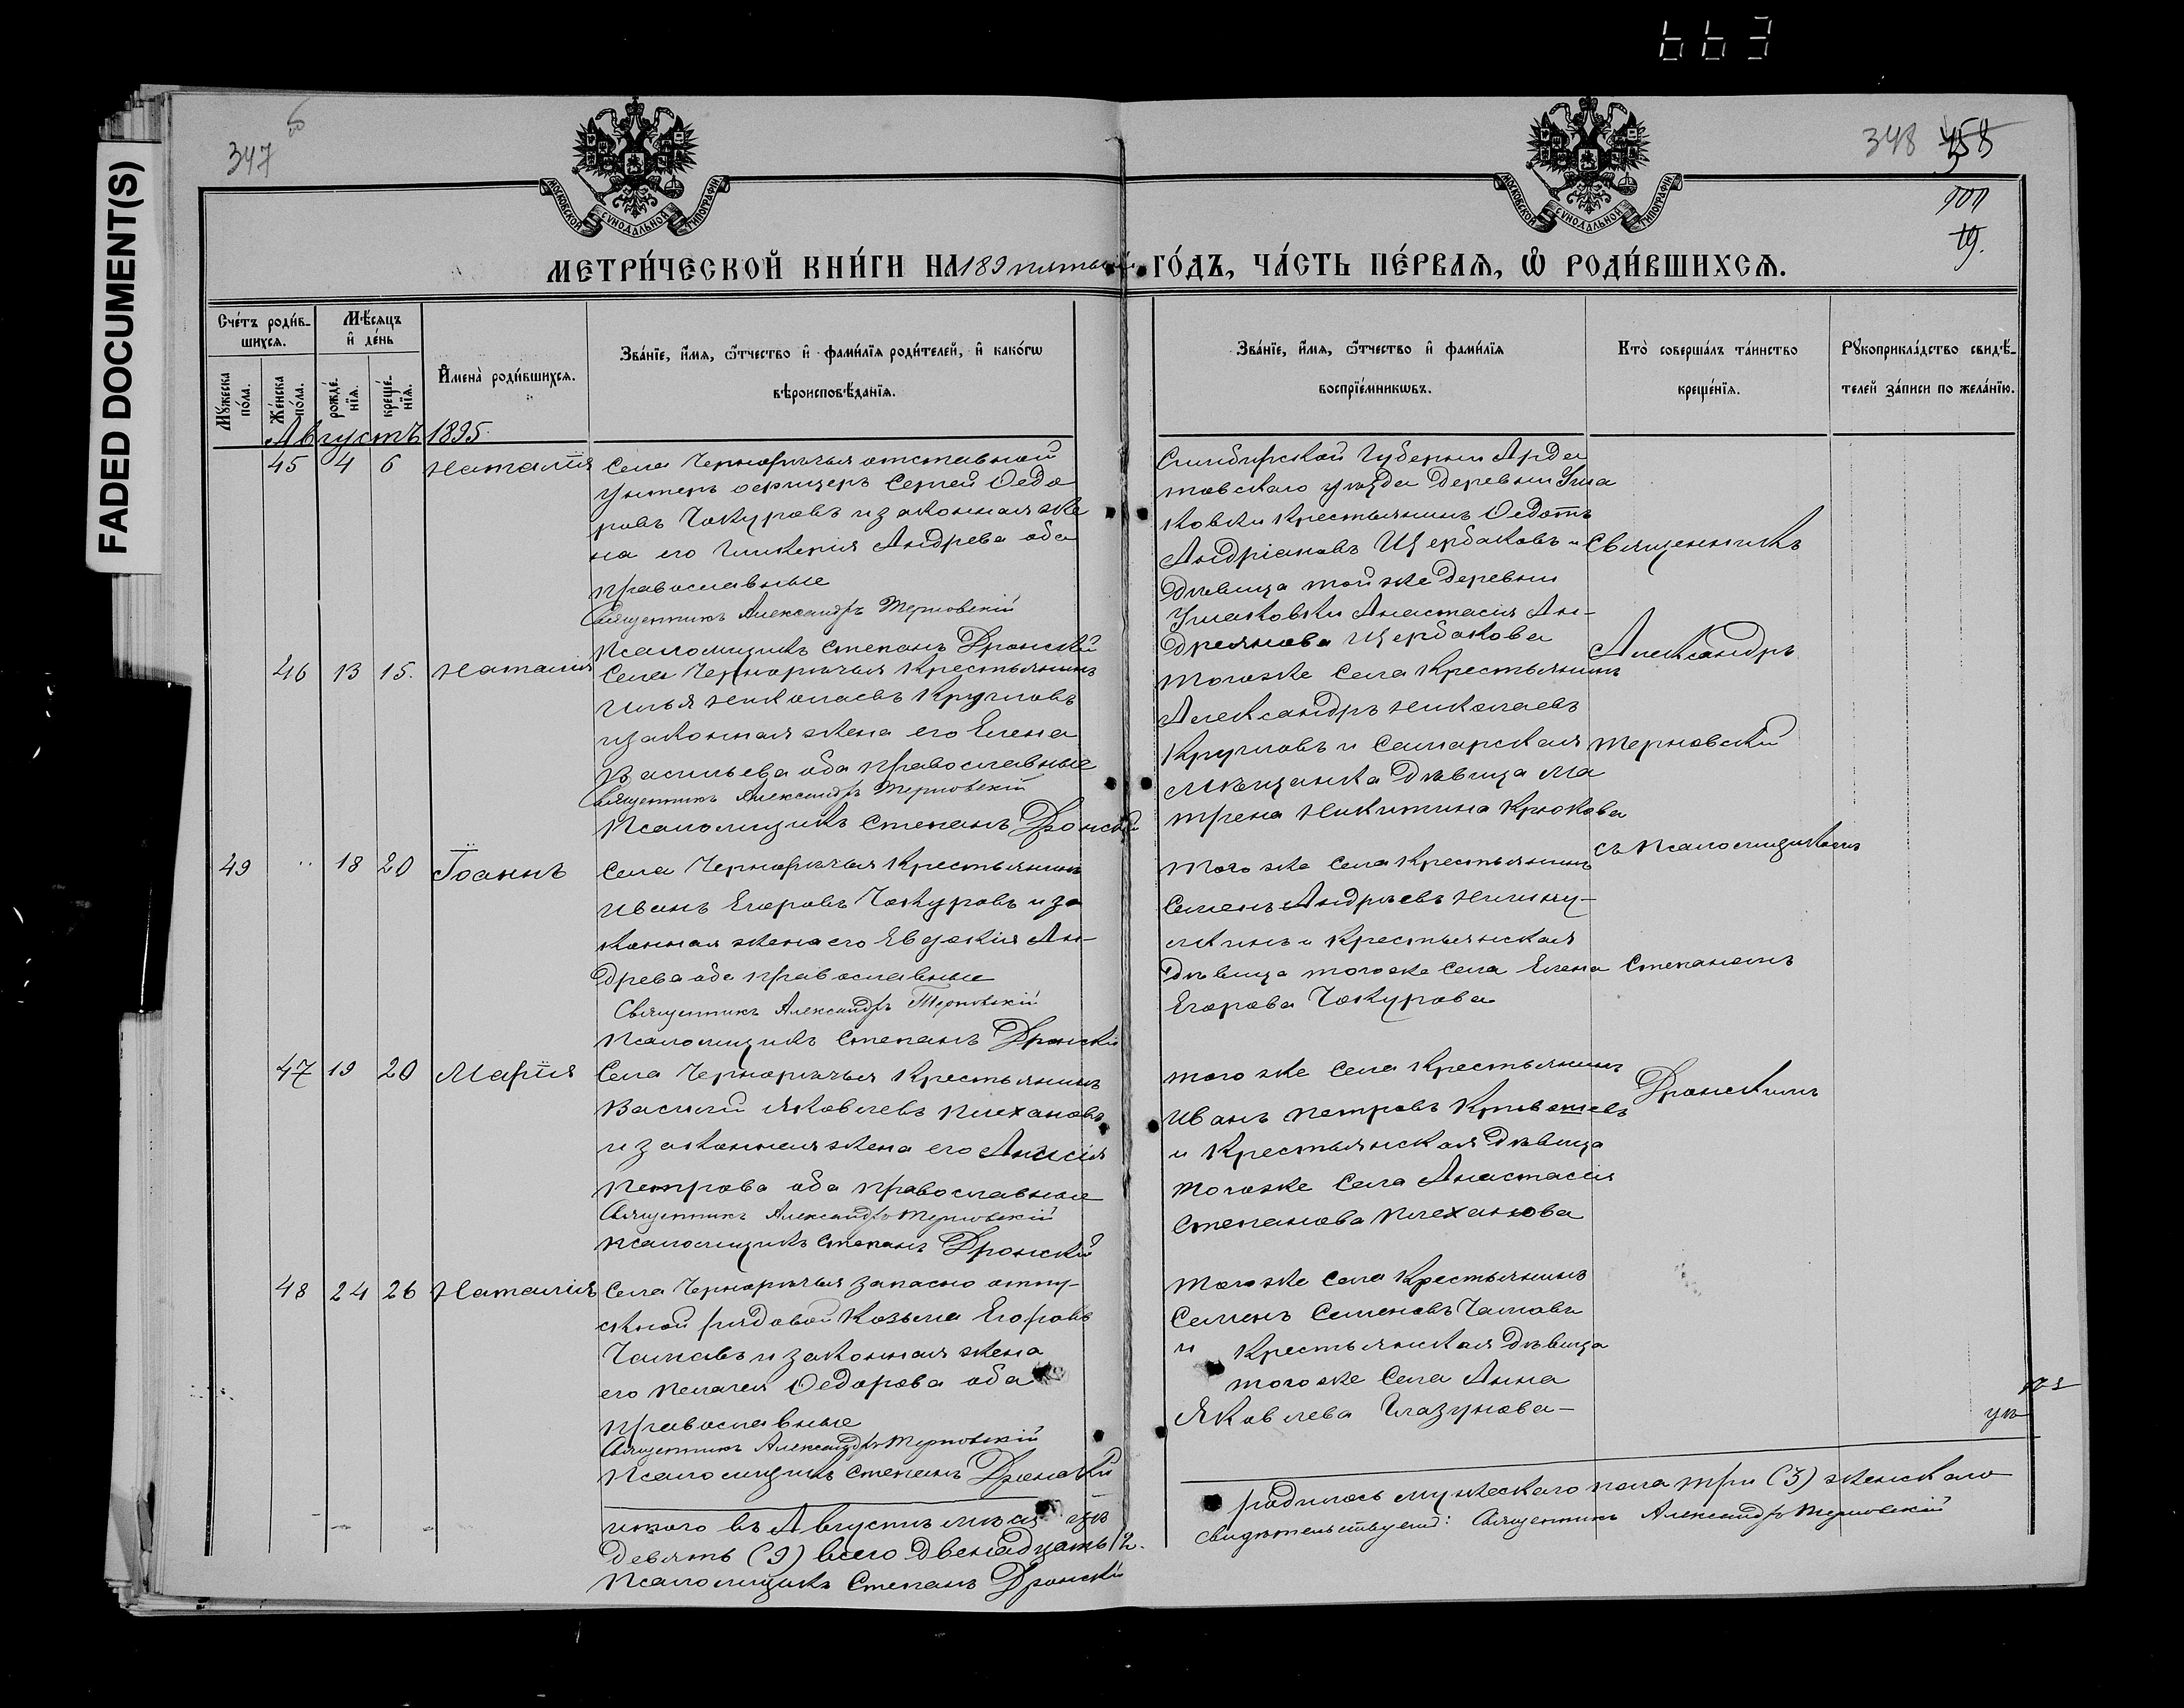 663
FADED DOCUMENT(S)
347
6
348 458
МОСКОВСКОЙ СѴНОДАЛЬНОЙ ТИПОГРАФІИ
МОСКОВСКОЙ СѴНОДАЛЬНОЙ ТИПОГРАФІИ
19.
МЕТРИ́ЧЕСКОЙ КНИ́ГИ НА 189 пятый ГО́ДЪ, ЧА́СТЬ ПЕ́РВАѦ, Ѡ҆ РОДИ́ВШИХСѦ.
Счетъ роди́в-
шихсѧ.
Мꙋжеска по́ла.
Же́нска по́ла.
Мѣ́сѧцъ
и҆ де́нь
рожде́-
нїѧ.
креще́-
нїѧ.
И҆мена̀ роди́вшихсѧ.
Зва́нїе, и҆́мѧ, ѻ҆́тчество и҆ фами́лїѧ роди́телей, и҆ како́гѡ
вѣроисповѣ́данїѧ.
Зва́нїе, и҆́мѧ, ѻ҆́тчество и҆ фами́лїѧ
воспрїе́мникѡвъ.
Кто̀ соверша́лъ та́инство
креще́нїѧ.
Рꙋкоприкла́дство свидѣ́-
телей за́писи по жела́нїю.
Августъ 1895.
45 4 6 Наталія
Села Чернорѣчья отставной
Унтеръ офицеръ Сергей Ѳедо
ровъ Чокуровъ и законная же
на его Гликерія Андрева оба
православные
Священникъ Александръ Терновскій
Псаломщикъ Степанъ Дронскій
Симбирской Губерніи Арда
товскаго уѣзда деревни Уша
ковки Крестьянинъ Ѳедотъ
Андріановъ Щербаковъ и
дѣвица той же деревни
Ушаковки Анастасія Ан-
дреянова Щербакова
Священникъ
Александръ
Терновскій
съ Псаломщикомъ
Степаномъ
Дронскимъ
46 13 15. Наталія
Села Чернорѣчья Крестьянинъ
Илья Николаевъ Кругловъ
и законная жена его Елена
Васильева оба православные
Священникъ Александръ Терновскій
Псаломщикъ Степанъ Дронскій
Тогоже Села Крестьянинъ
Александръ Николаевъ
Кругловъ и Самарская
Мѣщанка дѣвица Ма
трена Никитина Крюкова
49 .. 18 20 Іоаннъ
Села Чернорѣчья Крестьянинъ
Иванъ Егоровъ Чокуровъ и за
конная жена его Евдокія Ан-
древа оба православные
Священникъ Александръ Терновскій
Псаломщикъ Степанъ Дронскій
Того же Села Крестьянинъ
Семенъ Андрѣевъ
и Крестьянская
дѣвица тогоже Села Елена
Егорова Чокурова
47 19 20 Марія
Села Чернорѣчья Крестьянинъ
Василій Яковлевъ Плехановъ
и законная жена его Анисія
Петрова оба православные
Священникъ Александръ Терновскій
Псаломщикъ Степанъ Дронскій
того же Села Крестьянинъ
Иванъ Петровъ
и Крестьянская дѣвица
Тогоже Села Анастасія
Степанова Плеханова
48 24 26 Наталія
Села Чернорѣчья запасно отпу-
скной рядовой Козьма Егоровъ
и законная жена
его Пелагея Ѳедорова оба
православные
Священникъ Александръ Терновскій
Псаломщикъ Степанъ Дронскій
Тогоже Села Крестьянинъ
Семенъ Семеновъ
и Крестьянская дѣвица
тогоже Села Анна
Яковлева Глазунова-
итого въ Августѣ
родилось мужескаго пола три (3) женскаго
Девять (9) всего двенадцать 12.
Свидѣтельствуетъ: Священникъ Александръ Терновскій
Псаломщикъ Степанъ Дронскій